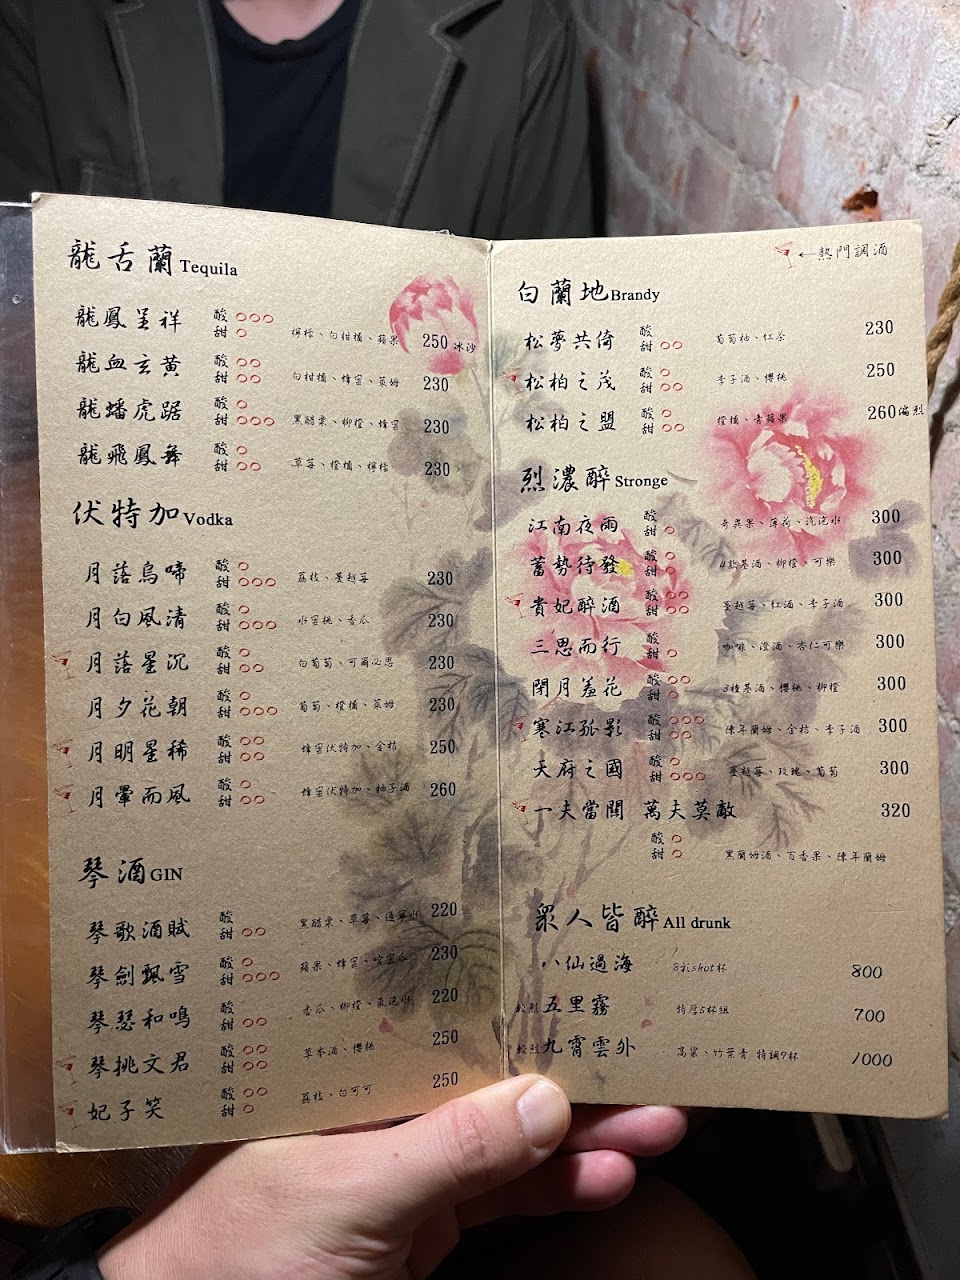 龍舌蘭 Tequila
龍鳳呈祥 酸○○○ 甜○ 檸檬、白柑橘、蘋果 250 冰沙
龍血玄黃 酸○○ 甜○○ 白柑橘、蜂蜜、萊姆 230
龍蟠虎踞 酸○ 甜○○○ 黑醋栗、柳橙、蜂蜜 230
龍飛鳳舞 酸○ 甜○○ 草莓、橙橘、檸檬 230
伏特加 Vodka
月落烏啼 酸○ 甜○○○ 荔枝、蔓越莓 230
月白風清 酸○ 甜○○○ 水蜜桃、香瓜 230
月落星沉 酸○ 甜○○ 白葡萄、可爾必思 230
月夕花朝 酸○ 甜○○○ 葡萄、橙橘、萊姆 230
月明星稀 酸○○ 甜○○ 蜂蜜伏特加、金桔 250
月暈而風 酸○ 甜○○ 蜂蜜伏特加、柚子酒 260
琴酒 GIN
琴歌酒賦 酸 甜○○ 黑醋栗、草莓、通寧水 220
琴劍飄雪 酸○ 甜○○○ 蘋果、蜂蜜、哈蜜瓜 230
琴瑟和鳴 酸 甜○○ 香瓜、柳橙、氣泡水 220
琴挑文君 酸○○ 甜○○ 草本酒、櫻桃 250
妃子笑 酸○○ 甜○ 荔枝、白可可 250
←熱門調酒
白蘭地 Brandy
松夢共倚 酸 甜○○ 葡萄柚、紅茶 230
松柏之茂 酸○ 甜○○ 李子酒、櫻桃 250
松柏之盟 酸○ 甜○○ 橙橘、青蘋果 260 偏烈
烈濃醉 Stronge
江南夜雨 酸 甜○ 奇異果、薄荷、汽泡水 300
蓄勢待發 酸○ 甜○ 4款基酒、柳橙、可樂 300
貴妃醉酒 酸○○ 甜○○ 蔓越莓、紅酒、李子酒 300
三思而行 酸 甜○ 咖啡、澄酒、杏仁可樂 300
閉月羞花 酸○○ 甜○ 3種基酒、櫻桃、柳橙 300
寒江孤影 酸○○○ 甜○○ 陳年蘭姆、金桔、李子酒 300
天府之國 酸○ 甜○○○ 蔓越莓、玫瑰、葡萄 300
一夫當關 萬夫莫敵 320
酸○ 甜○ 黑蘭姆酒、百香果、陳年蘭姆
眾人皆醉 All drunk
八仙過海 8彩shot杯 800
較烈 五里霧 特厚5杯組 700
較烈 九霄雲外 高粱、竹葉青 特調9杯 1000